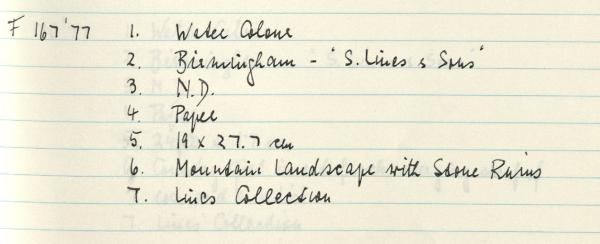 F 167'77 1. Water Colour
2. Birmingham - "S. Lines & Sons"
3. N.D.
4. Paper
5. 19 x 27.7 cm
6. Mountain Landscape with Stone Ruins
7. Lines Collection